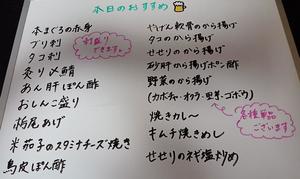 本日のおすすめ
本まぐろの赤身
ブリ刺
タコ刺
炙り〆鯖
あん肝ぽん酢
おしんこ盛り
栃尾あげ
米茄子のスタミナチーズ焼き
鳥皮ぽん酢
刺盛り
できます。
やげん軟骨のから揚げ
タコのから揚げ
せせりのから揚げ
砂肝から揚げポン酢
野菜のから揚げ
(カボチャ・オクラ・里芋・ゴボウ)
焼きカレー
キムチ焼きめし
せせりのネギ塩炒め
各種単品
ございます